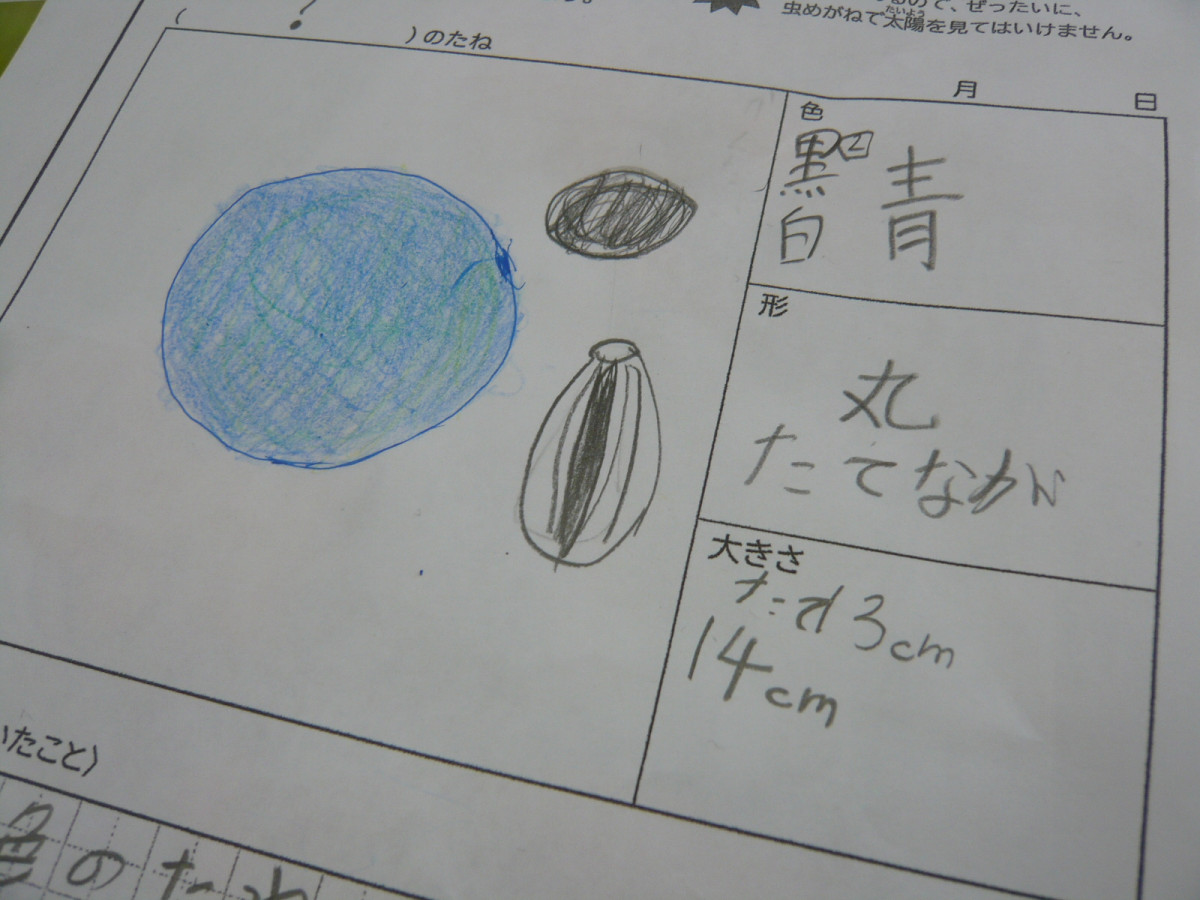 ので、ぜったいに、
虫めがねで太陽を見てはいけません。
たいよう
( ? )のたね
月 日
色
黒 青
白
形
丸
たてなが
大きさ
たて13cm
14cm
いたこと)
色のたね